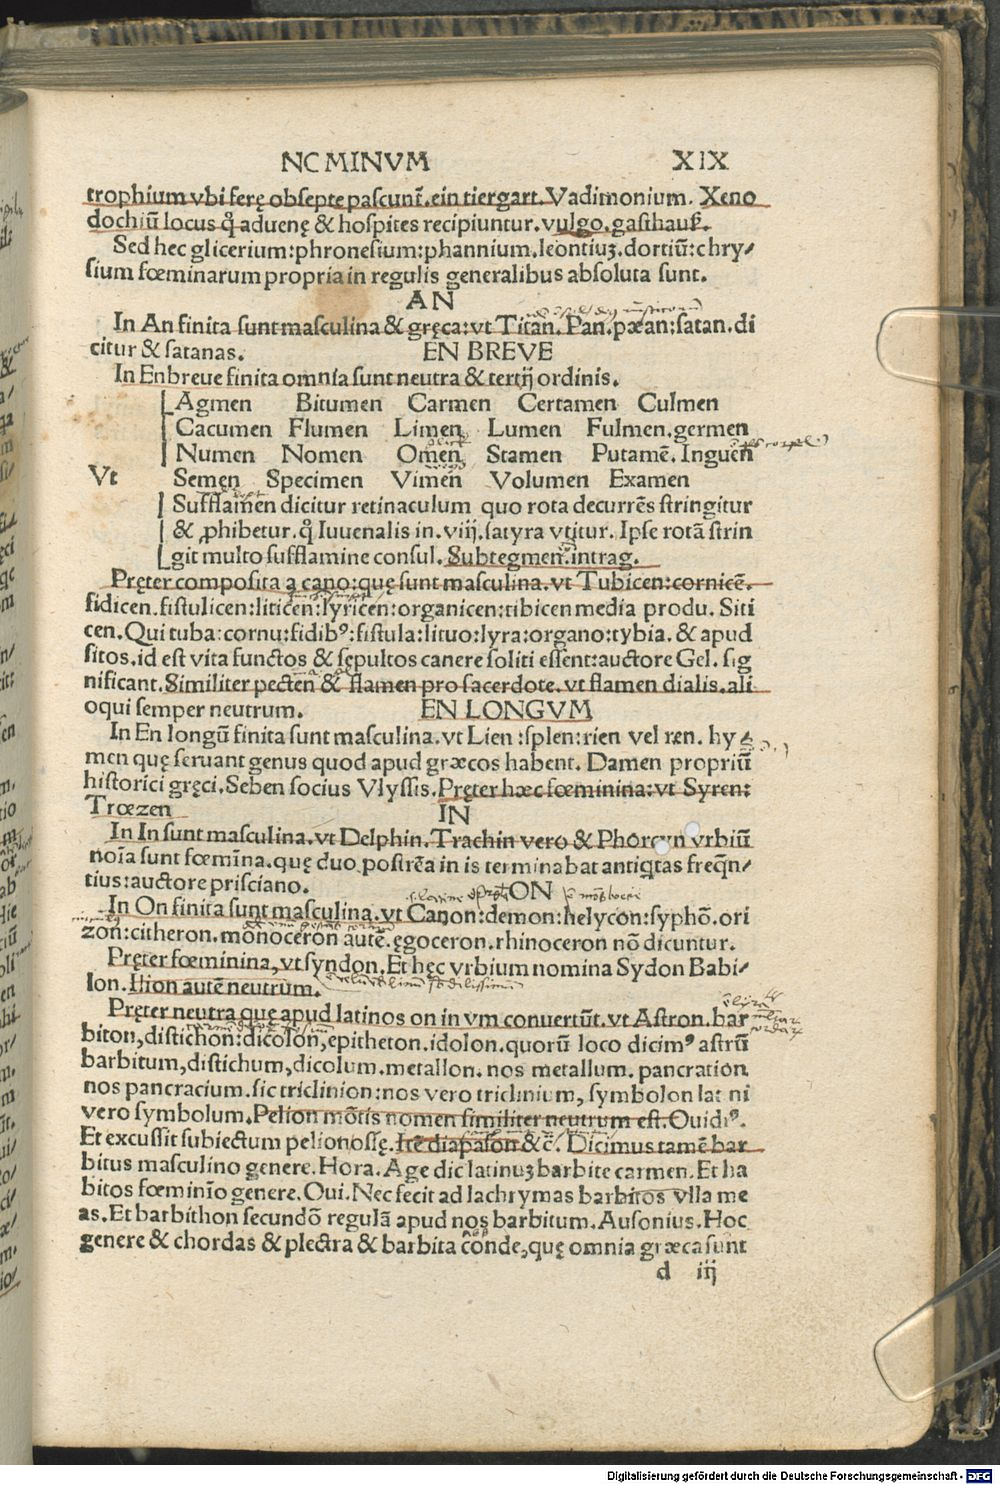 NCMINVM XIX
trophium vbi ferę obsepte pascunt᷑.ein tiergart. Vadimonium. Xeno
dochiū locus q̃ aduenę & hospites recipiuntur. vulgo.gasthauß.
Sed hec glicerium:phronesium:phannium.leontiuʒ.dortiū:chry/
sium fœminarum propria in regulis generalibus absoluta sunt.
AN
In An finita sunt masculina & gręca:vt Titan. Pan.pæan:satan.di
citur & satanas. EN BREVE
In En breue finita omnia sunt neutra & tertij ordinis.
Agmen Bitumen Carmen Certamen Culmen
Cacumen Flumen Limen Lumen Fulmen.germen
Numen Nomen Omen Stamen Putamē. Inguen
Vt Semen Specimen Vimen Volumen Examen
Sufflamen dicitur retinaculum quo rota decurrēs stringitur
& ꝓhibetur.q̃ Iuuenalis in.viij.satyra vtitur. Ipse rotā strin
git multo sufflamine consul. Subtegmen.intrag.
Pręter composita a cano:quę sunt masculina.vt Tubicen:cornicē.
fidicen.fistulicen:liticen:lyricen:organicen:tibicen media produ. Siti
cen. Qui tuba:cornu:fidibꝰ:fistula:lituo:lyra:organo:tybia.& apud
sitos.id est vita functos & sępultos canere soliti essent:auctore Gel. sig
nificant. Similiter pecten & flamen pro sacerdote.vt flamen dialis.ali
oqui semper neutrum. EN LONGVM
In En longū finita sunt masculina.vt Lien:splen:rien vel ren. hy
men quę seruant genus quod apud græcos habent. Damen propriū
historici gręci. Seben socius Vlyssis. Pręter hæc fœminina:vt Syren:
Trœzen IN
In In sunt masculina.vt Delphin. Trachin vero & Phorcyn vrbiū
noīa sunt fœmīna.quę duo postrēa in is terminabat antiqtas freqn̄/
tius:auctore prisciano. ON
In On finita sunt masculina.vt Canon:demon:helycon:syphō.ori
zon:citheron.monoceron autē.ęgoceron.rhinoceron nō dicuntur.
Pręter fœminina,vt syndon. Et hęc vrbium nomina Sydon Babi/
lon. Ilion autē neutrum.
Pręter neutra quę apud latinos on in vm conuertūt.vt Astron.bar
biton,distichon:dicolon,epitheton.idolon.quorū loco dicimꝰ astrū
barbitum,distichum,dicolum.metallon.nos metallum.pancration
nos pancracium.sic triclinion:nos vero triclinium, symbolon lat ni
vero symbolum. Pelion mōtis nomen similiter neutrum est. Ouidiꝰ.
Et excussit subiectum pelion ossę. Itē diapason &c̄. Dicimus tamē bar
bitus masculino genere. Hora. Age dic latinuʒ barbite carmen. Et ba
bitos fœminīo genere. Oui. Nec fecit ad lachrymas barbitos vlla me
as. Et barbithon secundō regulā apud nos barbitum. Ausonius. Hoc
genere & chordas & plectra & barbita conde,quę omnia græca sunt
d iij
Digitalisierung gefördert durch die Deutsche Forschungsgemeinschaft - DFG